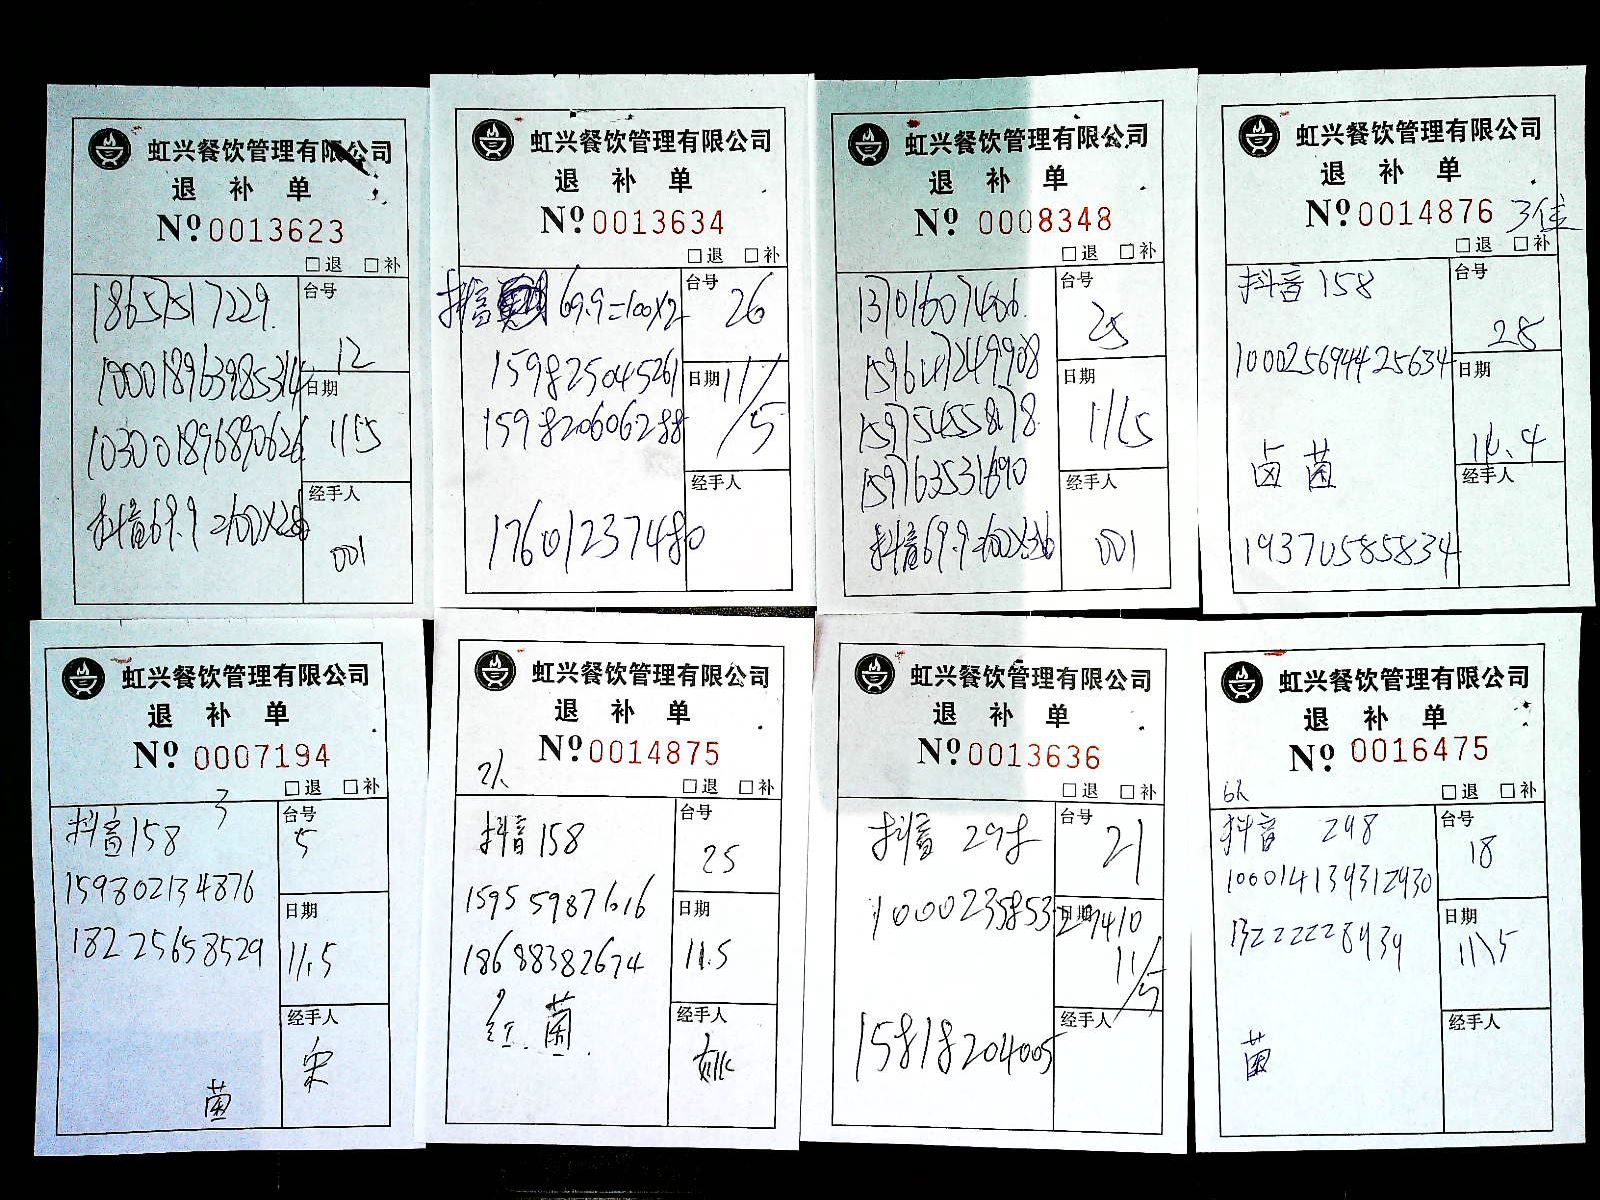 虹兴餐饮管理有限公司
退 补 单
Nº 0013623
□退 □补
18657517229
台号
12
100018963985314
日期
11.15
103001896890626
经手人
抖音69.9=100×2
001
虹兴餐饮管理有限公司
退 补 单
Nº 0013634
□退 □补
抖音 69.9=100×2
台号
26
159825045261
日期
11/5
159820606288
经手人
17601237480
虹兴餐饮管理有限公司
退 补 单
Nº 0008348
□退 □补
13701607486
台号
25
159754558178
日期
11/5
159763531690
经手人
抖音69.9=100×3
001
虹兴餐饮管理有限公司
退 补 单
Nº 0014876
3位
□退 □补
抖音 158
台号
28
100025694425634
日期
11.4
卤 菌
经手人
19370585834
虹兴餐饮管理有限公司
退 补 单
Nº 0007194
□退 □补
3
抖音158
台号
5
159802134876
日期
18225658529
11.5
经手人
宋
菌
虹兴餐饮管理有限公司
退 补 单
Nº 0014875
2人
□退 □补
抖音 158
台号
25
159559871616
日期
18688382674
11.5
红. 菌.
经手人
姚
虹兴餐饮管理有限公司
退 补 单
Nº 0013636
□退 □补
抖音 298
台号
21
100023585329410
日期
11/5
经手人
15818204005
虹兴餐饮管理有限公司
退 补 单
Nº 0016475
6人
□退 □补
抖音 298
台号
18
100014139312930
日期
13222228939
11\5
经手人
菌